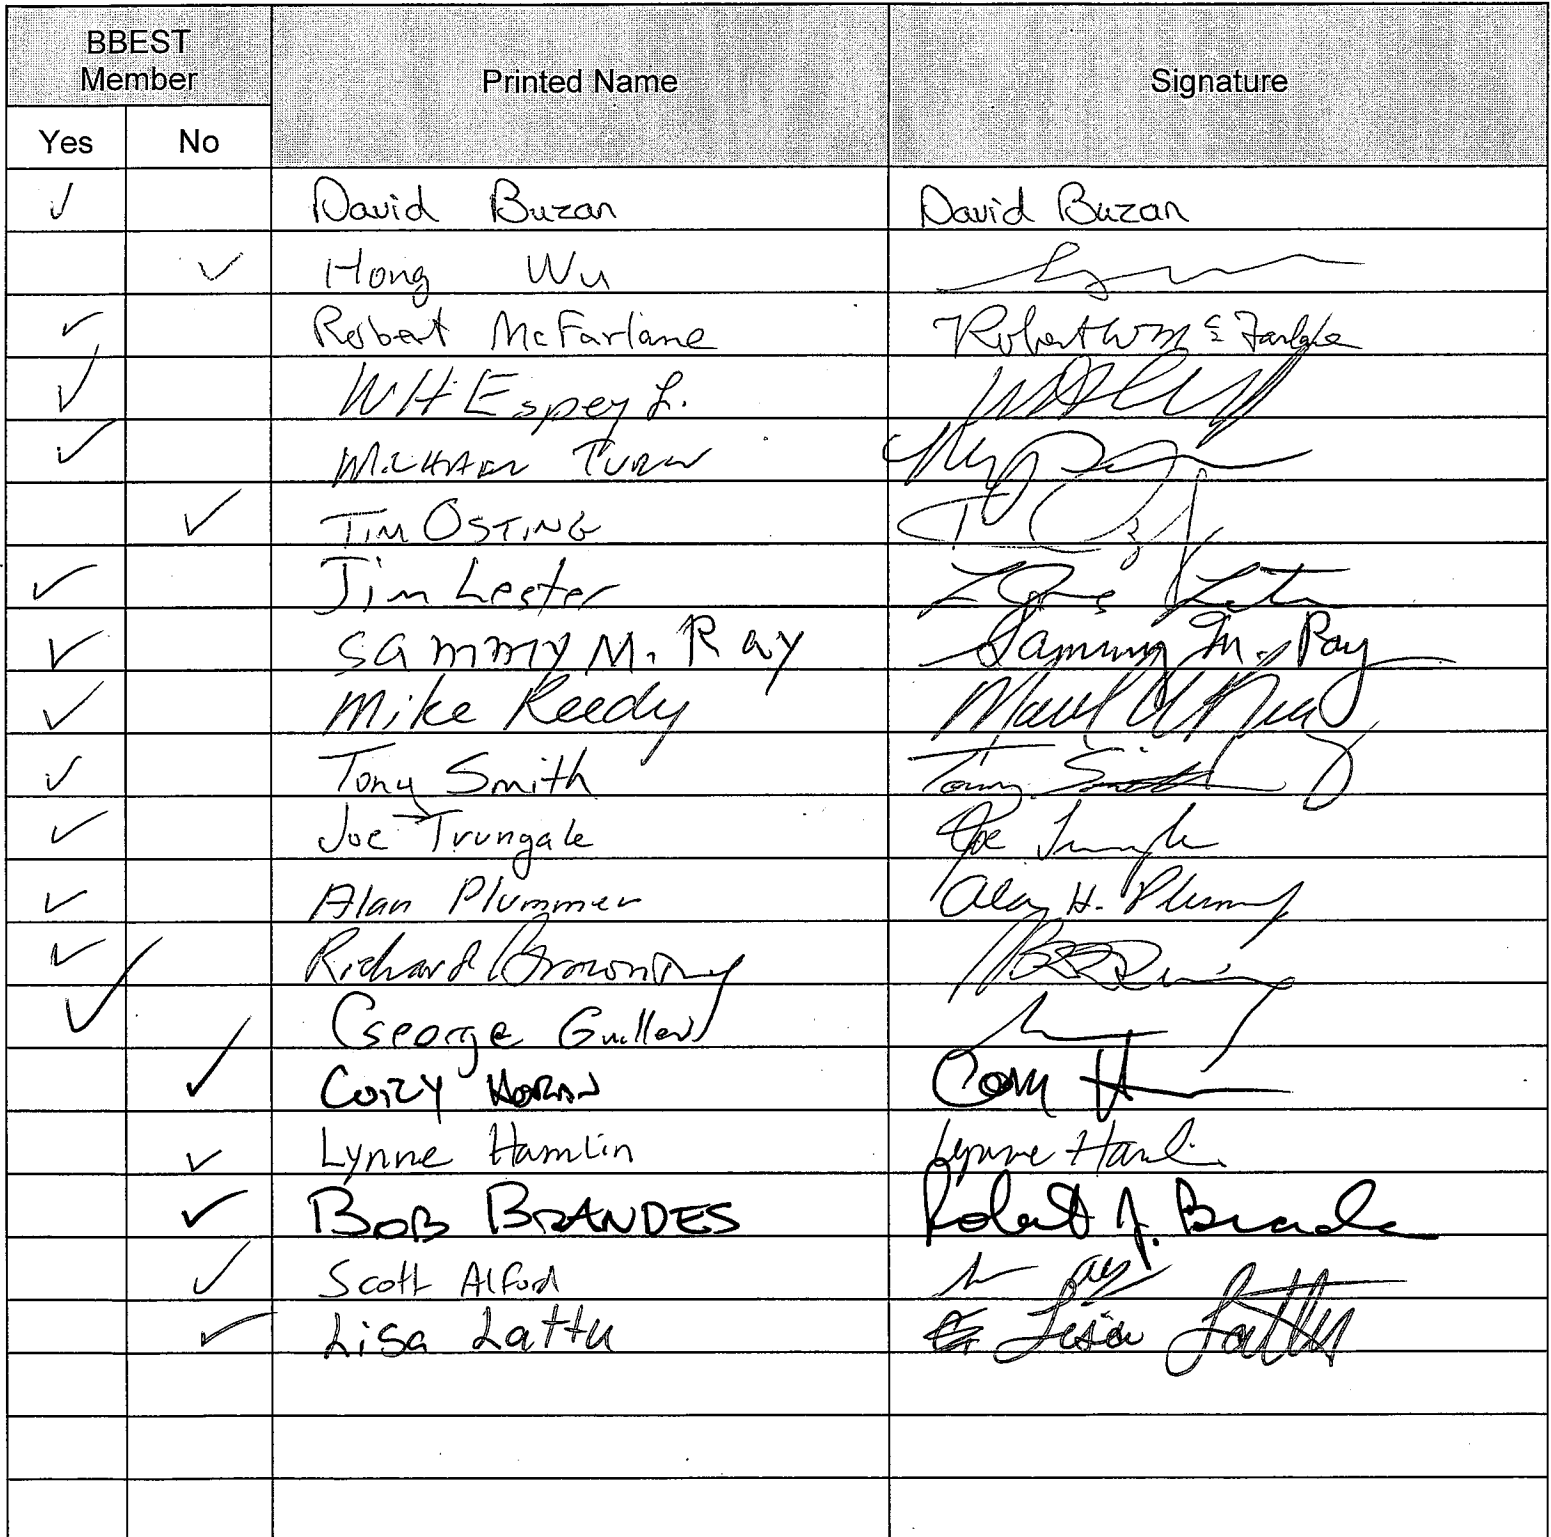 BBEST Member Printed Name Signature
Yes No
✓ David Buzan David Buzan
✓ Hong Wu
✓ Robert McFarlane Robert W McFarlane
✓ WH Espey Jr.
✓ Michael Turco
✓ Tim Osting
✓ Jim Lester
✓ Sammy M. Ray Sammy M. Ray
✓ Mike Reedy
✓ Tony Smith Tony Smith
✓ Joe Trungale Joe Trungale
✓ Alan Plummer Alan H. Plummer
✓ Richard Browning
✓ George Guillen
✓ Cory Horan Cory H
✓ Lynne Hamlin Lynne Hamlin
✓ BOB BRANDES Robert J. Brandes
✓ Scott Alford
✓ Lisa Lattu Lisa Lattu